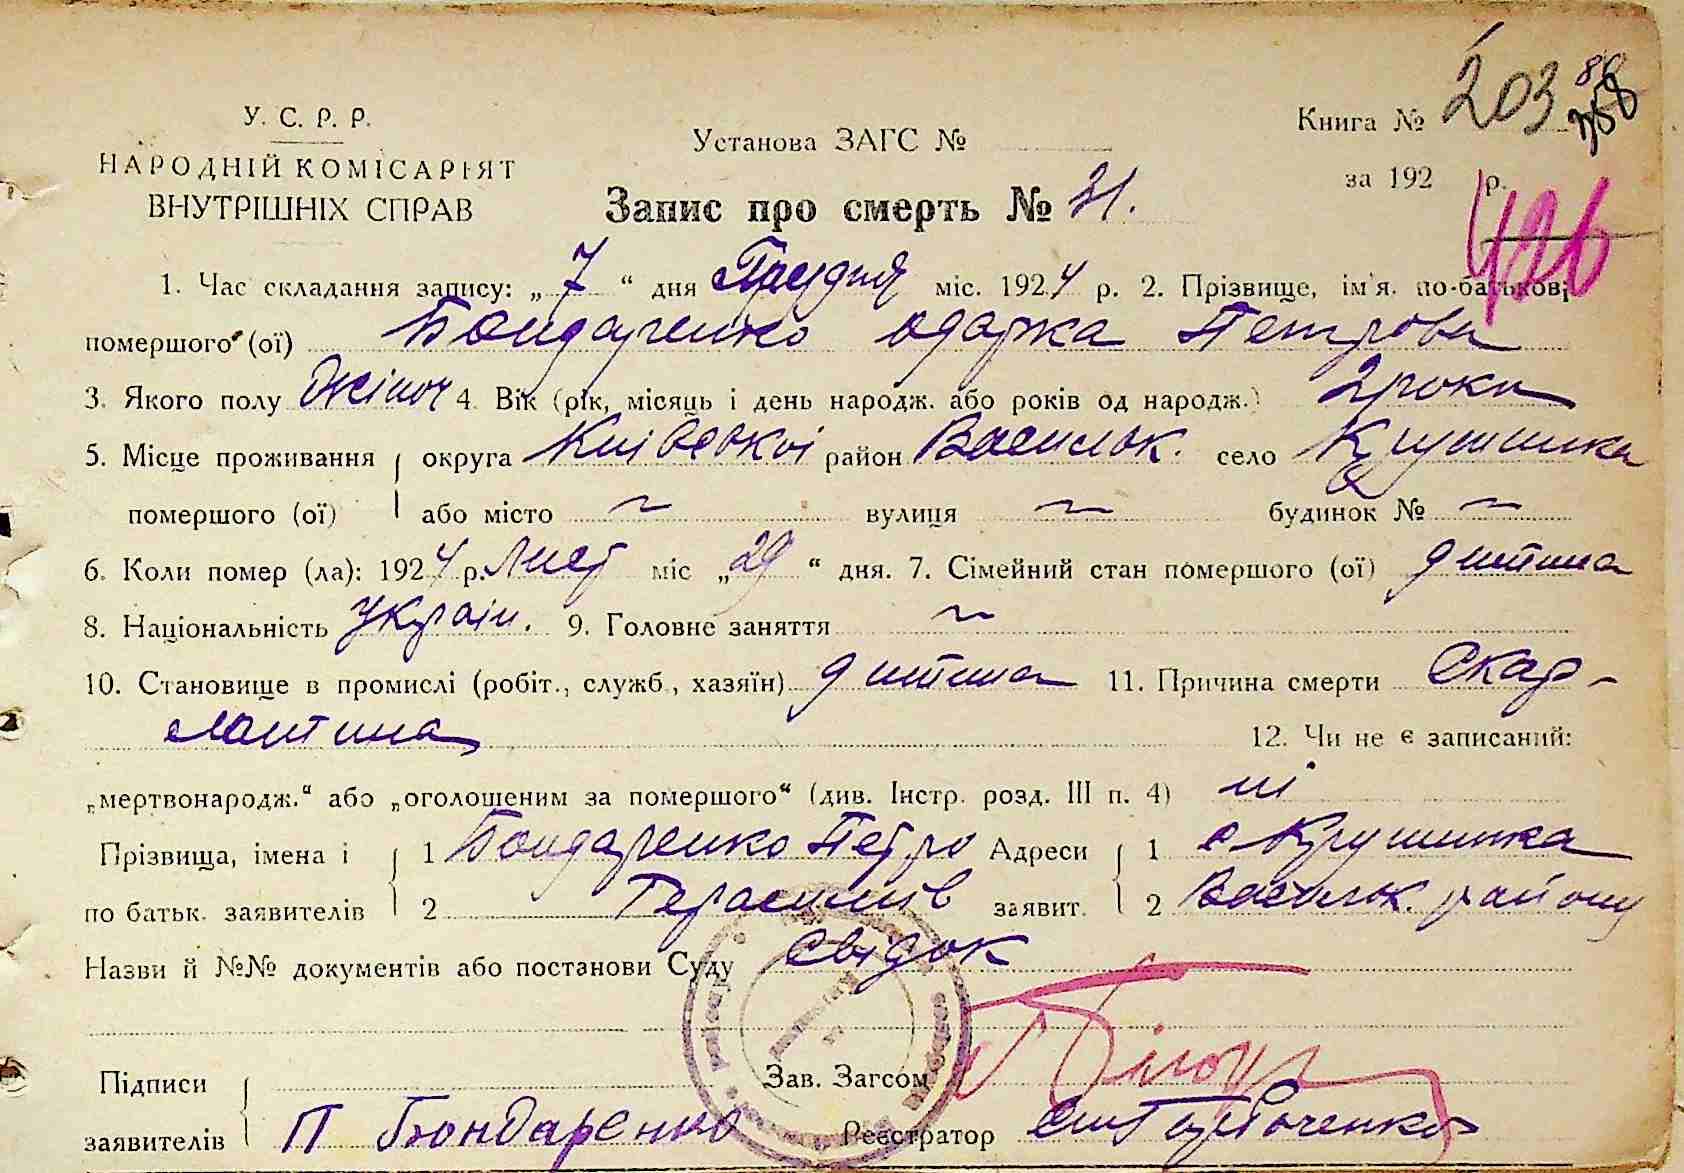 Книга № 203
У. С. Р. Р.
Установа ЗАГС №
НАРОДНІЙ КОМІСАРІЯТ
за 192 р.
ВНУТРІШНІХ СПРАВ
Запис про смерть № 31.
426
1. Час складання запису: „ 7 “ дня Грудня міс. 1924 р. 2. Прізвище, ім'я. по-батькові
помершого (ої) Бондаренко Одарка Петрова
3. Якого полу Жіноч 4. Вік (рік, місяць і день народж. або років од народж.) 2 роки
5. Місце проживання округа Київської район Васильк. село Крушинка
помершого (ої) або місто ~ вулиця ~ будинок № ~
6. Коли помер (ла): 1924 р. Лист міс „ 29 “ дня. 7. Сімейний стан помершого (ої) дитина
8. Національність Україн. 9. Головне заняття ~
10. Становище в промислі (робіт., служб., хазяїн) дитина 11. Причина смерти Скар-
лятина 12. Чи не є записаний:
„мертвонародж.“ або „оголошеним за помершого“ (див. Інстр. розд. III п. 4) ні
Прізвища, імена і 1 Бондаренко Петро Адреси 1 с Крушинка
по батьк. заявителів 2 Герасимів заявит. 2 Васильк. району
Назви й №№ документів або постанови Суду Свідок
Підписи Зав. Загсом
заявителів П Бондаренко Реєстратор